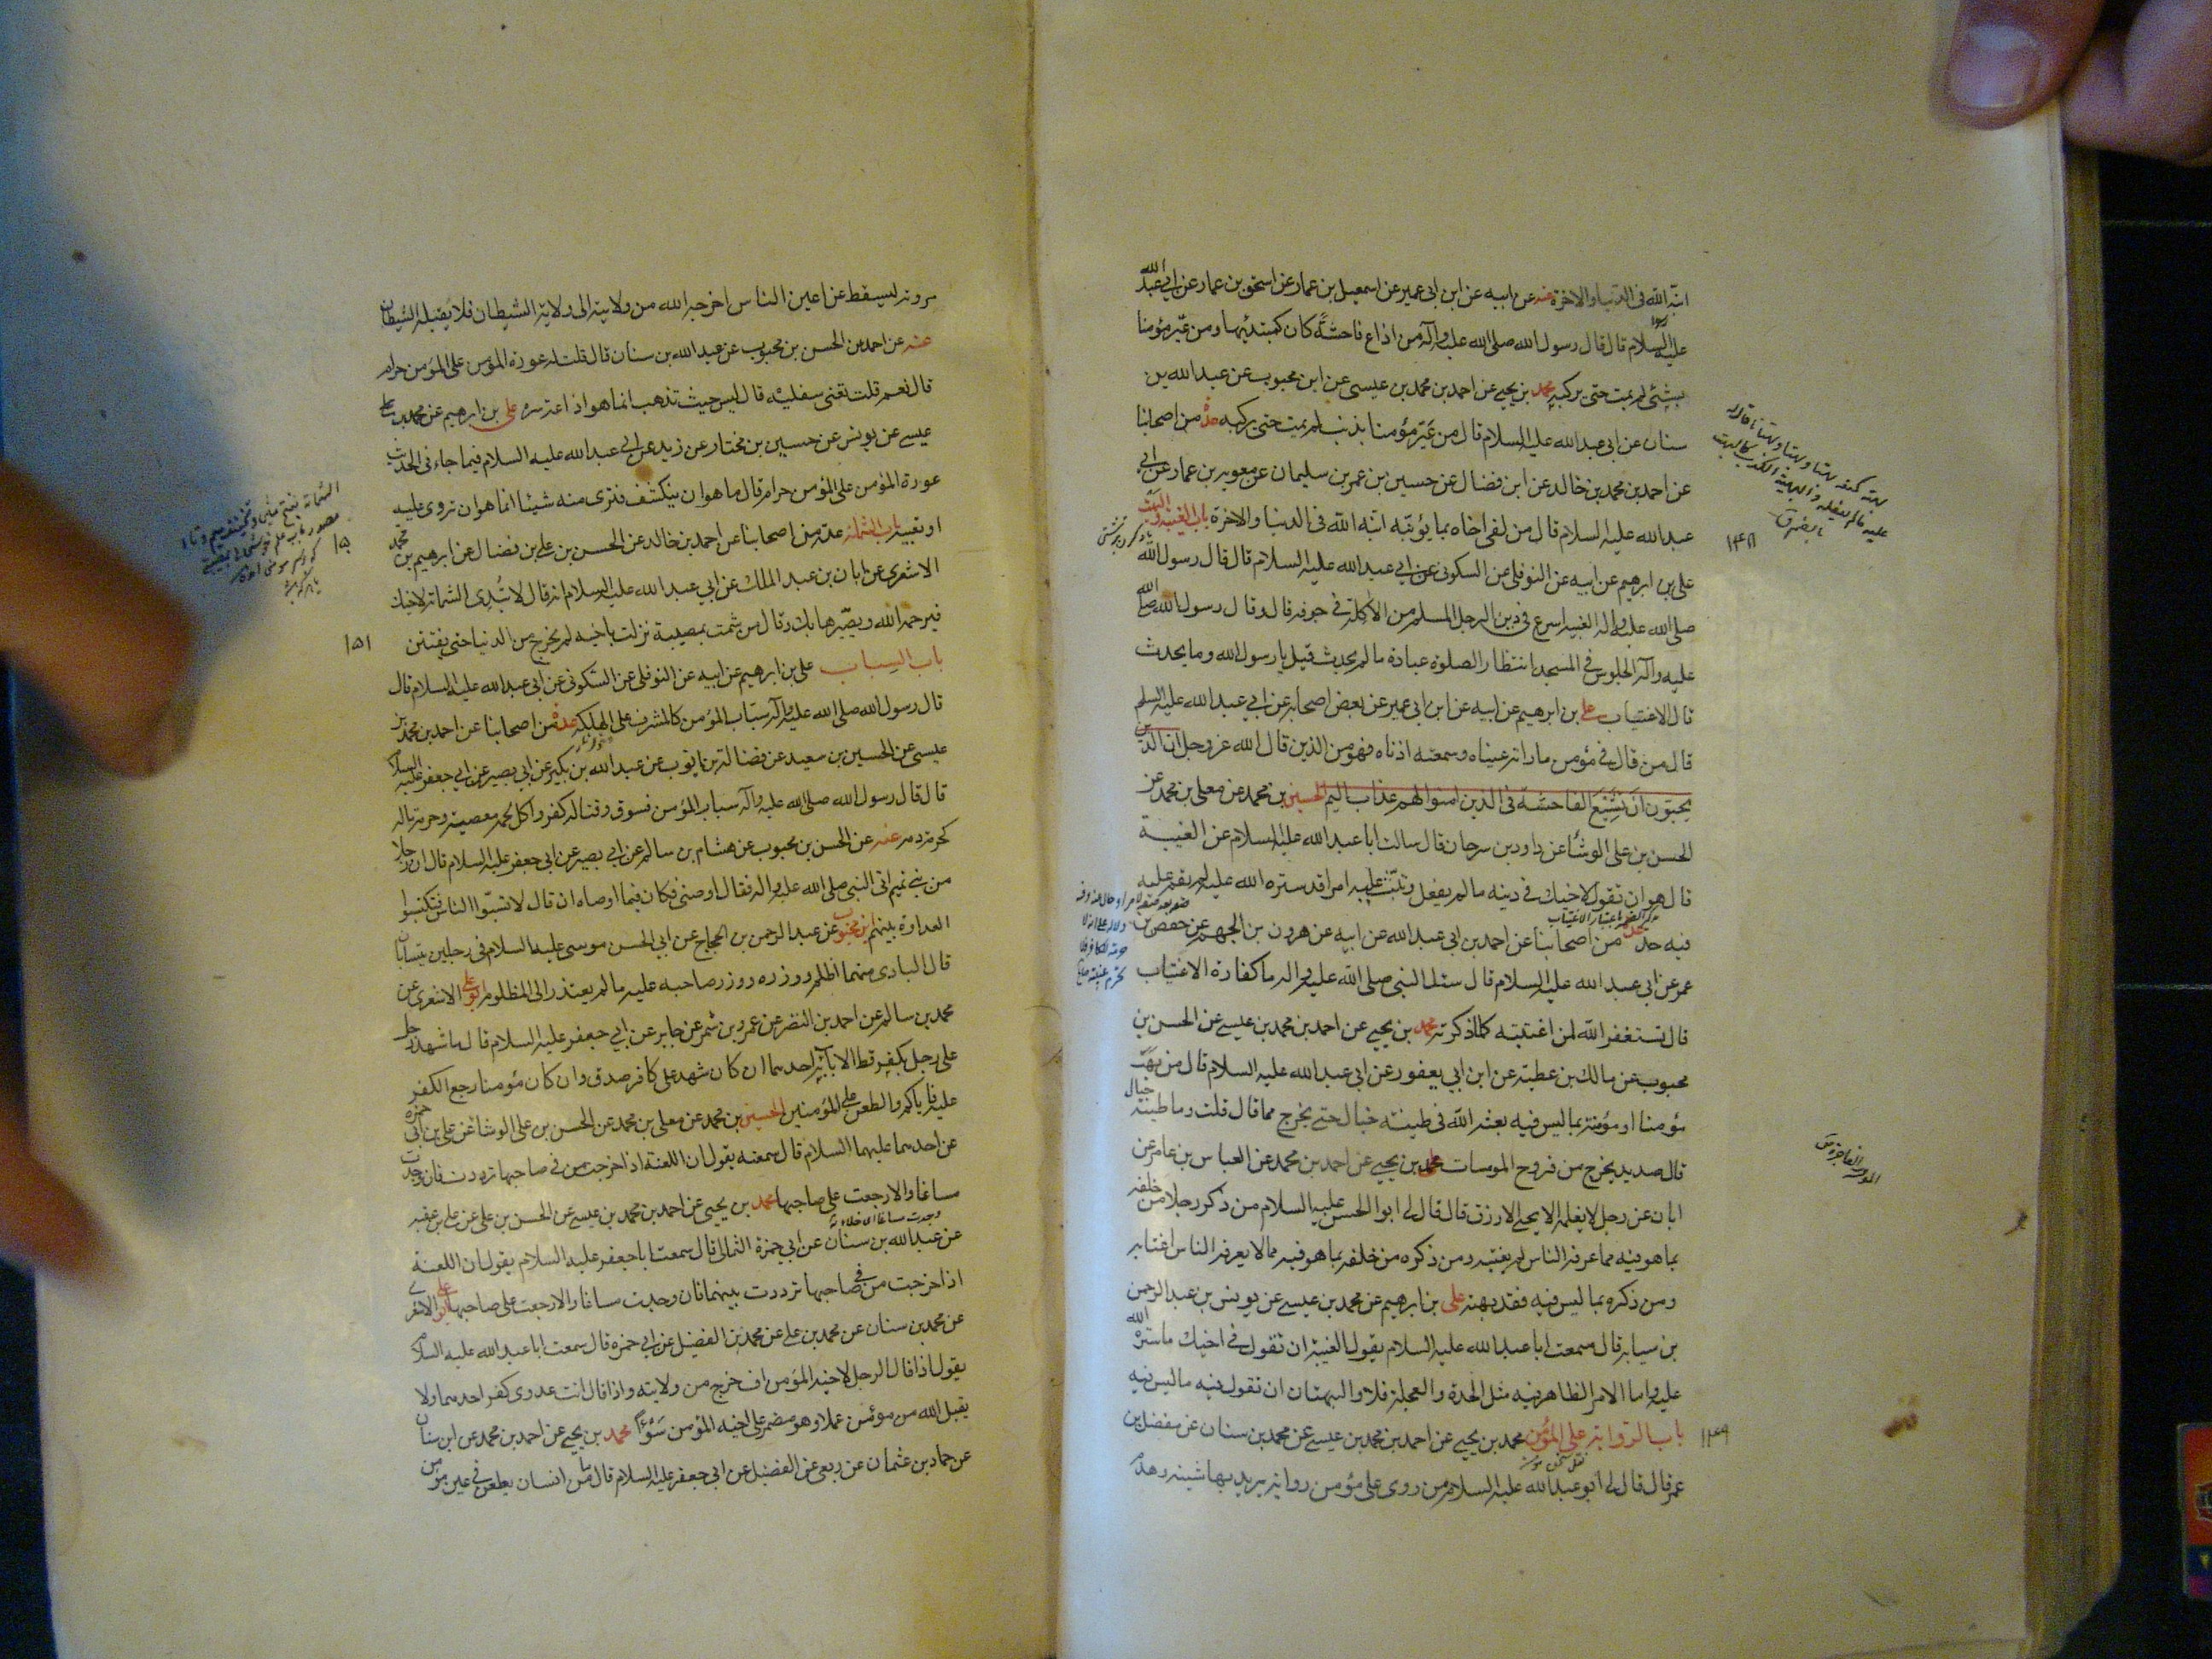 انبه الله في الدنيا والاخرة عنه عن ابيه عن ابن ابي عمير عن اسمعيل بن عمار عن اسحق بن عمار عن ابي عبد الله
عليه السلام قال قال رسول الله صلى الله عليه وآله من اذاع فاحشة كان كمبتديها ومن عيّر مؤمنا
بشئ لم يمت حتى يركبه محمد بن يحيى عن احمد بن محمد بن عيسى عن ابن محبوب عن عبد الله بن
سنان عن ابي عبد الله عليه السلام قال من عيّر مؤمنا بذنب لم يمت حتى يركبه عدة من اصحابنا
عن احمد بن محمد بن خالد عن ابن فضال عن حسين بن عمر بن سليمان عن معوية بن عمار عن ابي
عبد الله عليه السلام قال من لقى اخاه بما يؤنبه انبه الله في الدنيا والاخرة باب الغيبة والبهت
علي بن ابرهيم عن ابيه عن النوفلي عن السكوني عن ابي عبد الله عليه السلام قال قال رسول الله
صلى الله عليه واله الغيبة اسرع في دين الرجل المسلم من الاكلة في جوفه قال وقال رسول الله صلى الله
عليه وآله الجلوس في المسجد انتظار الصلوة عبادة ما لم يحدث قيل يا رسول الله وما يحدث
قال الاغتياب علي بن ابرهيم عن ابيه عن ابن ابي عمير عن بعض اصحابه عن ابي عبد الله عليه السلم
قال من قال في مؤمن ما راته عيناه وسمعته اذناه فهو من الذين قال الله عز وجل ان الذين
يحبون ان تشيع الفاحشة في الذين امنوا لهم عذاب اليم الحسين بن محمد عن معلى بن محمد عن
الحسن بن علي الوشا عن داود بن سرحان قال سالت ابا عبد الله عليه السلام عن الغيبة
قال هو ان تقول لاخيك في دينه ما لم يفعل وتبثّ عليه امرا قد ستره الله عليه لم يقم عليه
فيه حد عدة من اصحابنا عن احمد بن ابي عبد الله عن ابيه عن هرون بن الجهم عن حفص بن
عمر عن ابي عبد الله عليه السلام قال سئل النبي صلى الله عليه واله ما كفارة الاغتياب
قال تستغفر الله لمن اغتبته كلما ذكرته محمد بن يحيى عن احمد بن محمد بن عيسى عن الحسن بن
محبوب عن مالك بن عطية عن ابن ابي يعفور عن ابي عبد الله عليه السلام قال من بهت
مؤمنا او مؤمنة بما ليس فيه بعثه الله في طينة خبال حتى يخرج مما قال قلت وما طينة خبال
قال صديد يخرج من فروج المومسات محمد بن يحيى عن احمد بن محمد عن العباس بن عامر عن
ابان عن رجل لا يعلمه الا يحيى الازرق قال قال لي ابو الحسن عليه السلام من ذكر رجلا من خلفه
بما هو فيه مما عرفه الناس لم يغتبه ومن ذكره من خلفه بما هو فيه مما لا يعرفه الناس اغتابه
ومن ذكره بما ليس فيه فقد بهته علي بن ابرهيم عن محمد بن عيسى عن يونس بن عبد الرحمن
بن سيابة قال سمعت ابا عبد الله عليه السلام يقول الغيبة ان تقول في اخيك ما ستره الله
عليه واما الامر الظاهر فيه مثل الحدة والعجلة فلا والبهتان ان تقول فيه ما ليس فيه
باب الرواية على المؤمن محمد بن يحيى عن احمد بن محمد بن عيسى عن محمد بن سنان عن مفضل بن
عمر قال قال لي ابو عبد الله عليه السلام من روى على مؤمن رواية يريد بها شينه وهدم
١٤٨
١٤٩
مروته ليسقط عن اعين الناس اخرجه الله من ولايته الى ولاية الشيطان فلا يقبله الشيطان
عنه عن احمد عن الحسن بن محبوب عن عبد الله بن سنان قال قلت له عورة المؤمن على المؤمن حرام
قال نعم قلت تعنى سفليه قال ليس حيث تذهب انما هو اذاعة سره علي بن ابرهيم عن محمد بن
عيسى عن يونس عن حسين بن مختار عن زيد عن ابي عبد الله عليه السلام فيما جاء في الحديث
عورة المؤمن على المؤمن حرام قال ما هو ان ينكشف فترى منه شيئا انما هو ان تروى عليه
او تعيبه باب الشماتة عدة من اصحابنا عن احمد بن خالد عن الحسن بن علي بن فضال عن ابرهيم بن محمد
الاشعري عن ابان بن عبد الملك عن ابي عبد الله عليه السلام انه قال لا تبدى الشماتة لاخيك
فيرحمه الله ويصيّرها بك وقال من شمت بمصيبة نزلت باخيه لم يخرج من الدنيا حتى يفتتن
باب السباب علي بن ابرهيم عن ابيه عن النوفلي عن السكوني عن ابي عبد الله عليه السلام قال
قال رسول الله صلى الله عليه وآله سباب المؤمن كالمشرف على الهلكة عدة من اصحابنا عن احمد بن محمد بن
عيسى عن الحسين بن سعيد عن فضالة بن ايوب عن عبد الله بن بكير عن ابي بصير عن ابي جعفر عليه السلام
قال قال رسول الله صلى الله عليه وآله سباب المؤمن فسوق وقتاله كفر واكل لحمه معصية وحرمة ماله
كحرمة دمه عنه عن الحسن بن محبوب عن هشام بن سالم عن ابي بصير عن ابي جعفر عليه السلام قال ان رجلا
من بني تميم اتى النبي صلى الله عليه واله فقال اوصني فكان فيما اوصاه ان قال لا تسبّوا الناس فتكتسبوا
العداوة بينهم ابن محبوب عن عبد الرحمن بن الحجاج عن ابي الحسن موسى عليه السلام في رجلين يتسابان
قال البادى منهما اظلم ووزره ووزر صاحبه عليه ما لم يعتذر الى المظلوم ابو علي الاشعري عن
محمد بن سالم عن احمد بن النضر عن عمرو بن شمر عن جابر عن ابي جعفر عليه السلام قال ما شهد رجل
على رجل بكفر قط الا باء به احدهما ان كان شهد على كافر صدق وان كان مؤمنا رجع الكفر
عليه فاياكم والطعن على المؤمنين الحسين بن محمد عن معلى بن محمد عن الحسن بن علي الوشا عن علي بن ابي حمزة
عن احدهما عليهما السلام قال سمعته يقول ان اللعنة اذا خرجت من في صاحبها ترددت فان وجدت
مساغا والا رجعت على صاحبها محمد بن يحيى عن احمد بن محمد بن عيسى عن الحسن بن علي عن علي بن عقبة
عن عبد الله بن سنان عن ابي حمزة الثمالي قال سمعت ابا جعفر عليه السلام يقول ان اللعنة
اذا خرجت من في صاحبها ترددت بينهما فان وجدت مساغا والا رجعت على صاحبها ابو علي الاشعري
عن محمد بن سنان عن محمد بن علي عن محمد بن الفضيل عن ابي حمزة قال سمعت ابا عبد الله عليه السلام
يقول اذا قال الرجل لاخيه المؤمن اف خرج من ولايته واذا قال انت عدوى كفر احدهما ولا
يقبل الله من مؤمن عملا وهو مضمر على اخيه المؤمن سوءا محمد بن يحيى عن احمد بن محمد عن ابن سنان
عن حماد بن عثمان عن ربعى عن الفضيل عن ابي جعفر عليه السلام قال ما من انسان يطعن في عين مؤمن
١٥١